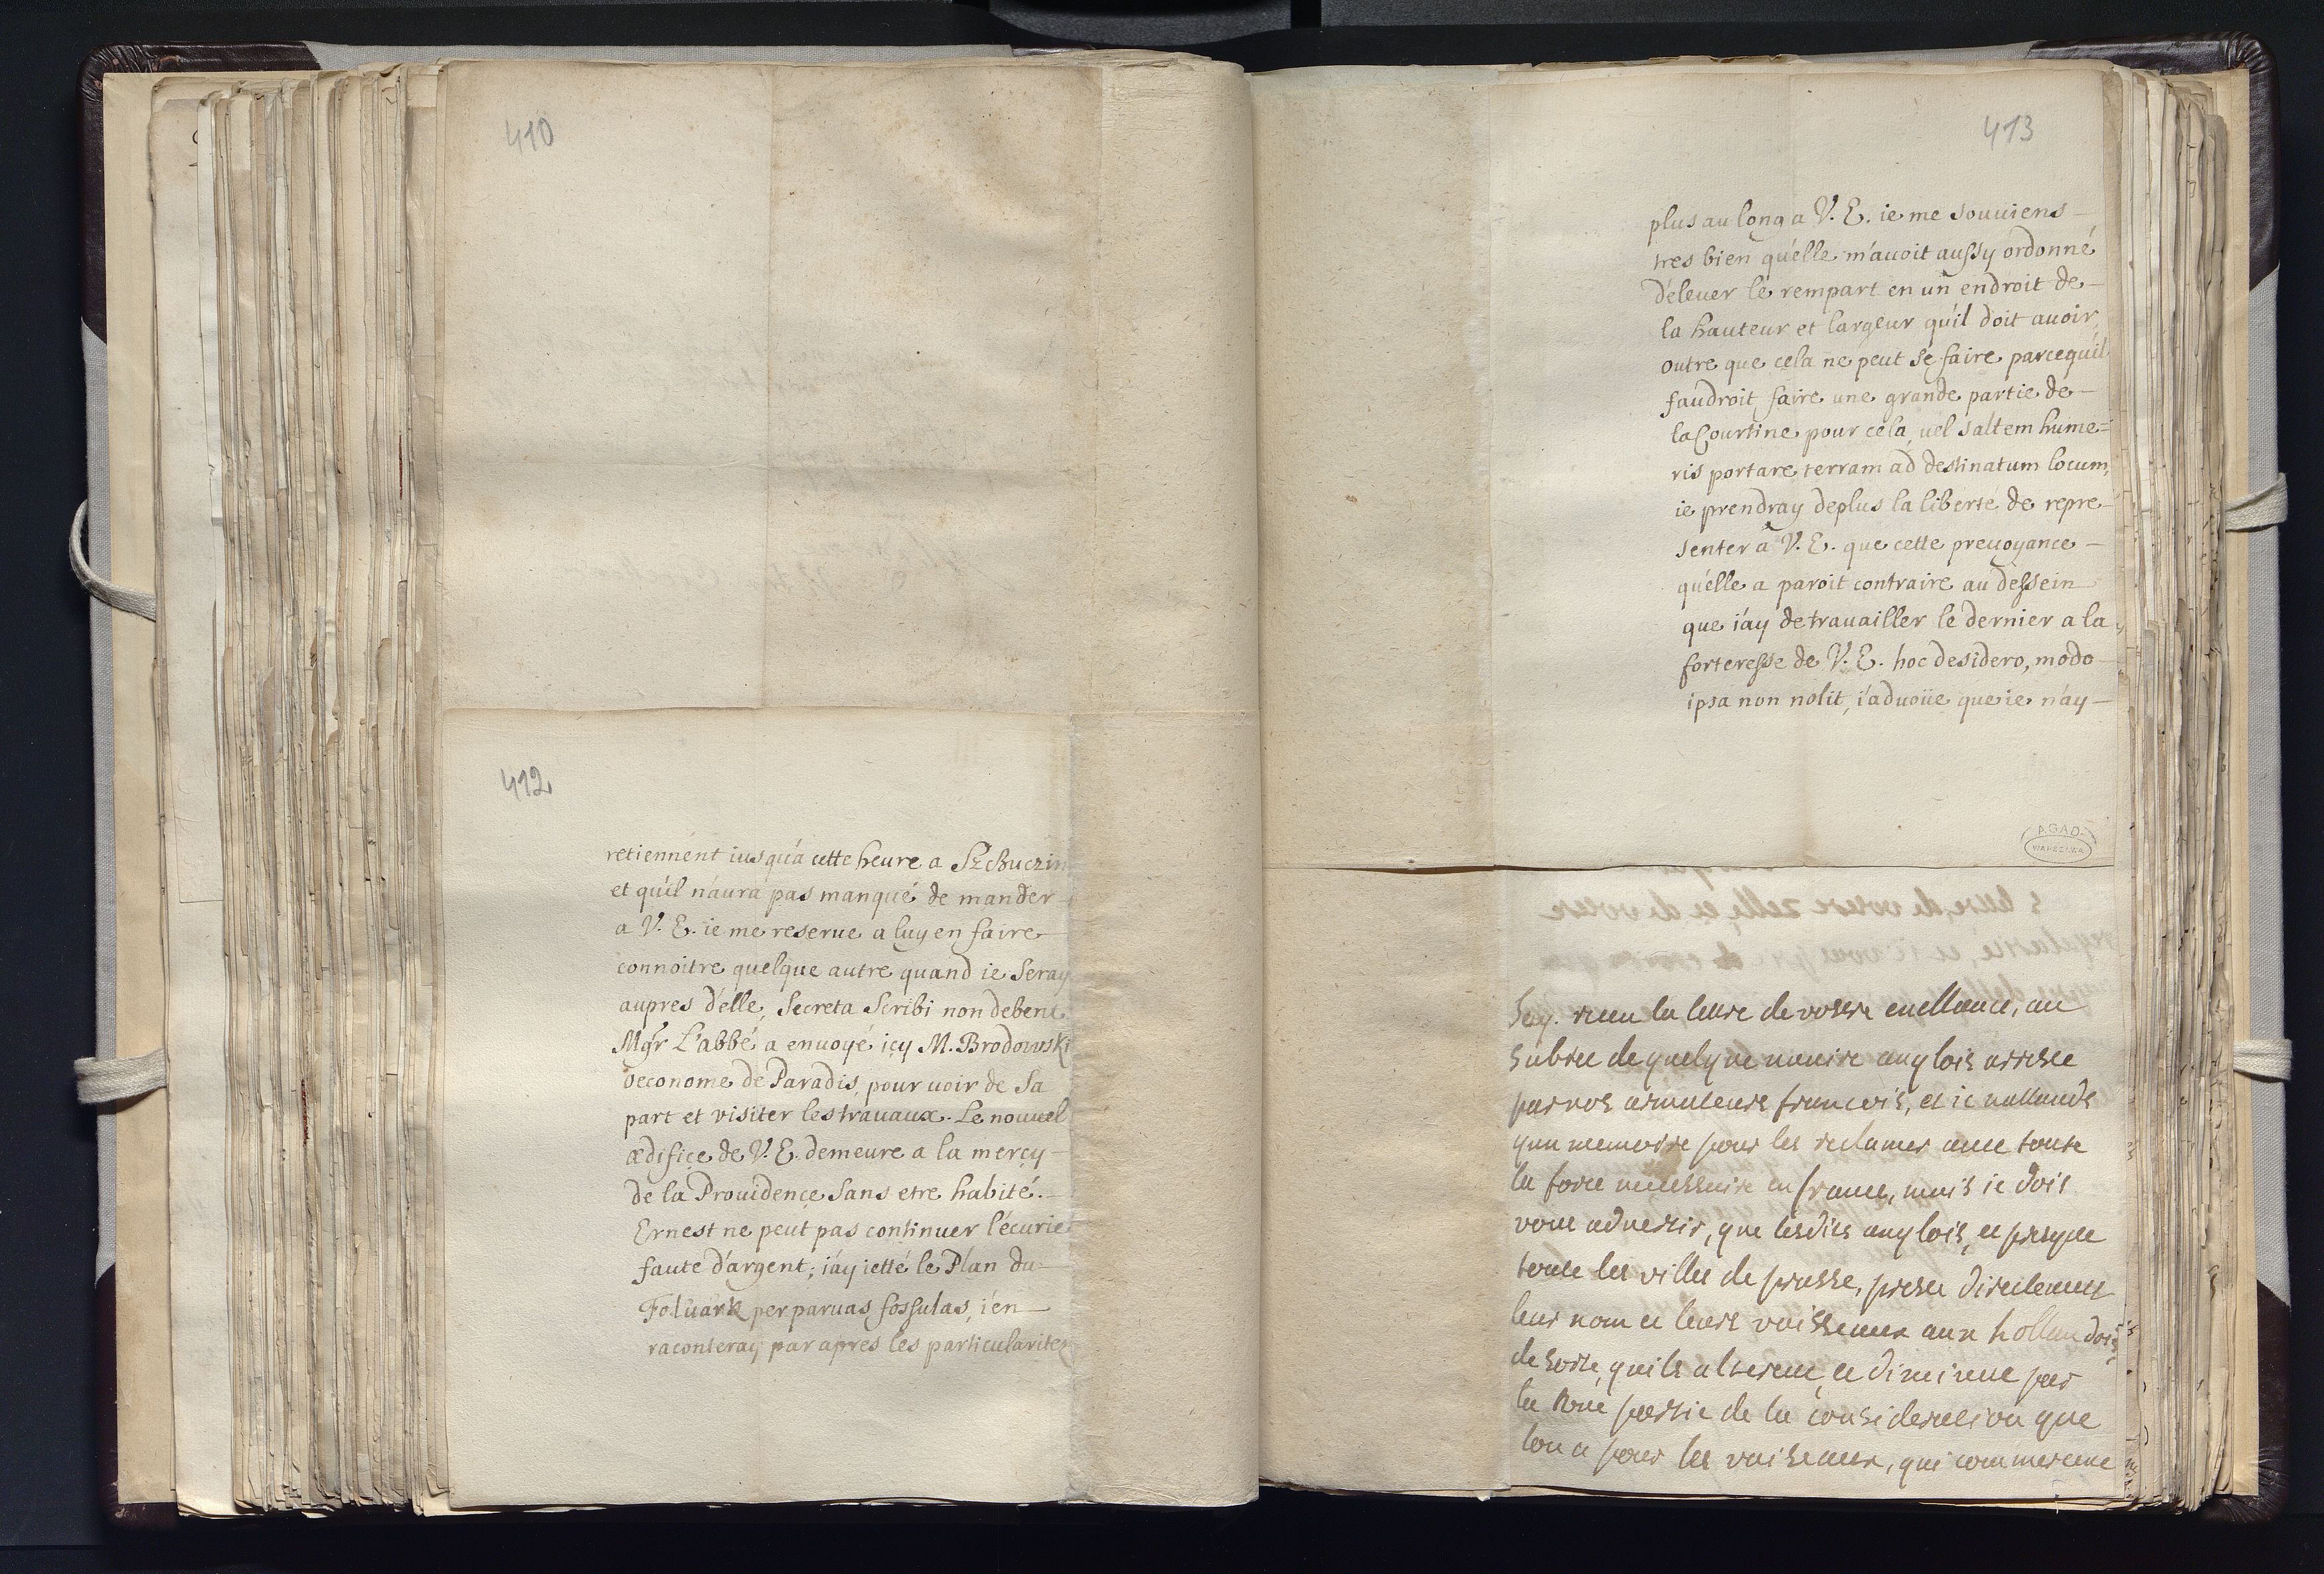 410
412
retiennent iusqu'a cette heure a Szchuczin
et qu'il n'aura pas manqué de mander
a V. E. ie me reserue a luy en faire
connoitre quelque autre quand ie seray
aupres d'elle, Secreta Scribi non debent
Mgr L'abbé a enuoyé icy M. Brodowski
oeconome de Paradis pour uoir de Sa
part et visiter les trauaux. Le nouuel
ædifice de V. E. demeure a la mercy
de la Prouidence sans etre habité.
Ernest ne peut pas continuer l'écurie
faute d'argent; i'ay ietté le Plan du
Foluark per paruas fossulas, i'en
raconteray par apres les particularitez
413
plus au long a V. E. ie me souuiens
tres bien qu'elle m'auoit aussy ordonné
d'eleuer le rempart en un endroit de
la hauteur et largeur qu'il doit auoir,
outre que cela ne peut se faire parcequ'il
faudroit faire une grande partie de
la Courtine pour cela, uel saltem hume=
ris portare terram ad destinatum locum,
ie prendray deplus la liberte de repre
senter a V. E. que cette preuoyance
qu'elle a paroit contraire au dessein
que i'ay de trauailler le dernier a la
forteresse de V. E. hoc desidero, modo
ipsa non nolit, i'aduoüe que ie n'ay
AGAD
WARSZAWA
Jay receu la lettre de vostre excellance, au
subiet de quelque nauire anglois arrestee
par nos armateurs francois, et ie nattands
qun memoire pour les reclamer auec toute
la force necessaire en france, mais ie dois
vous aduertir, que lesdits anglois, et presque
toute les villes de prusse, preste directement
leur nom et leurs vaisseaux aux hollandois,
de sorte, quils alterent, et diminue par
la une partie de la consideration que
lon a pour les vaiseaux, qui commercent